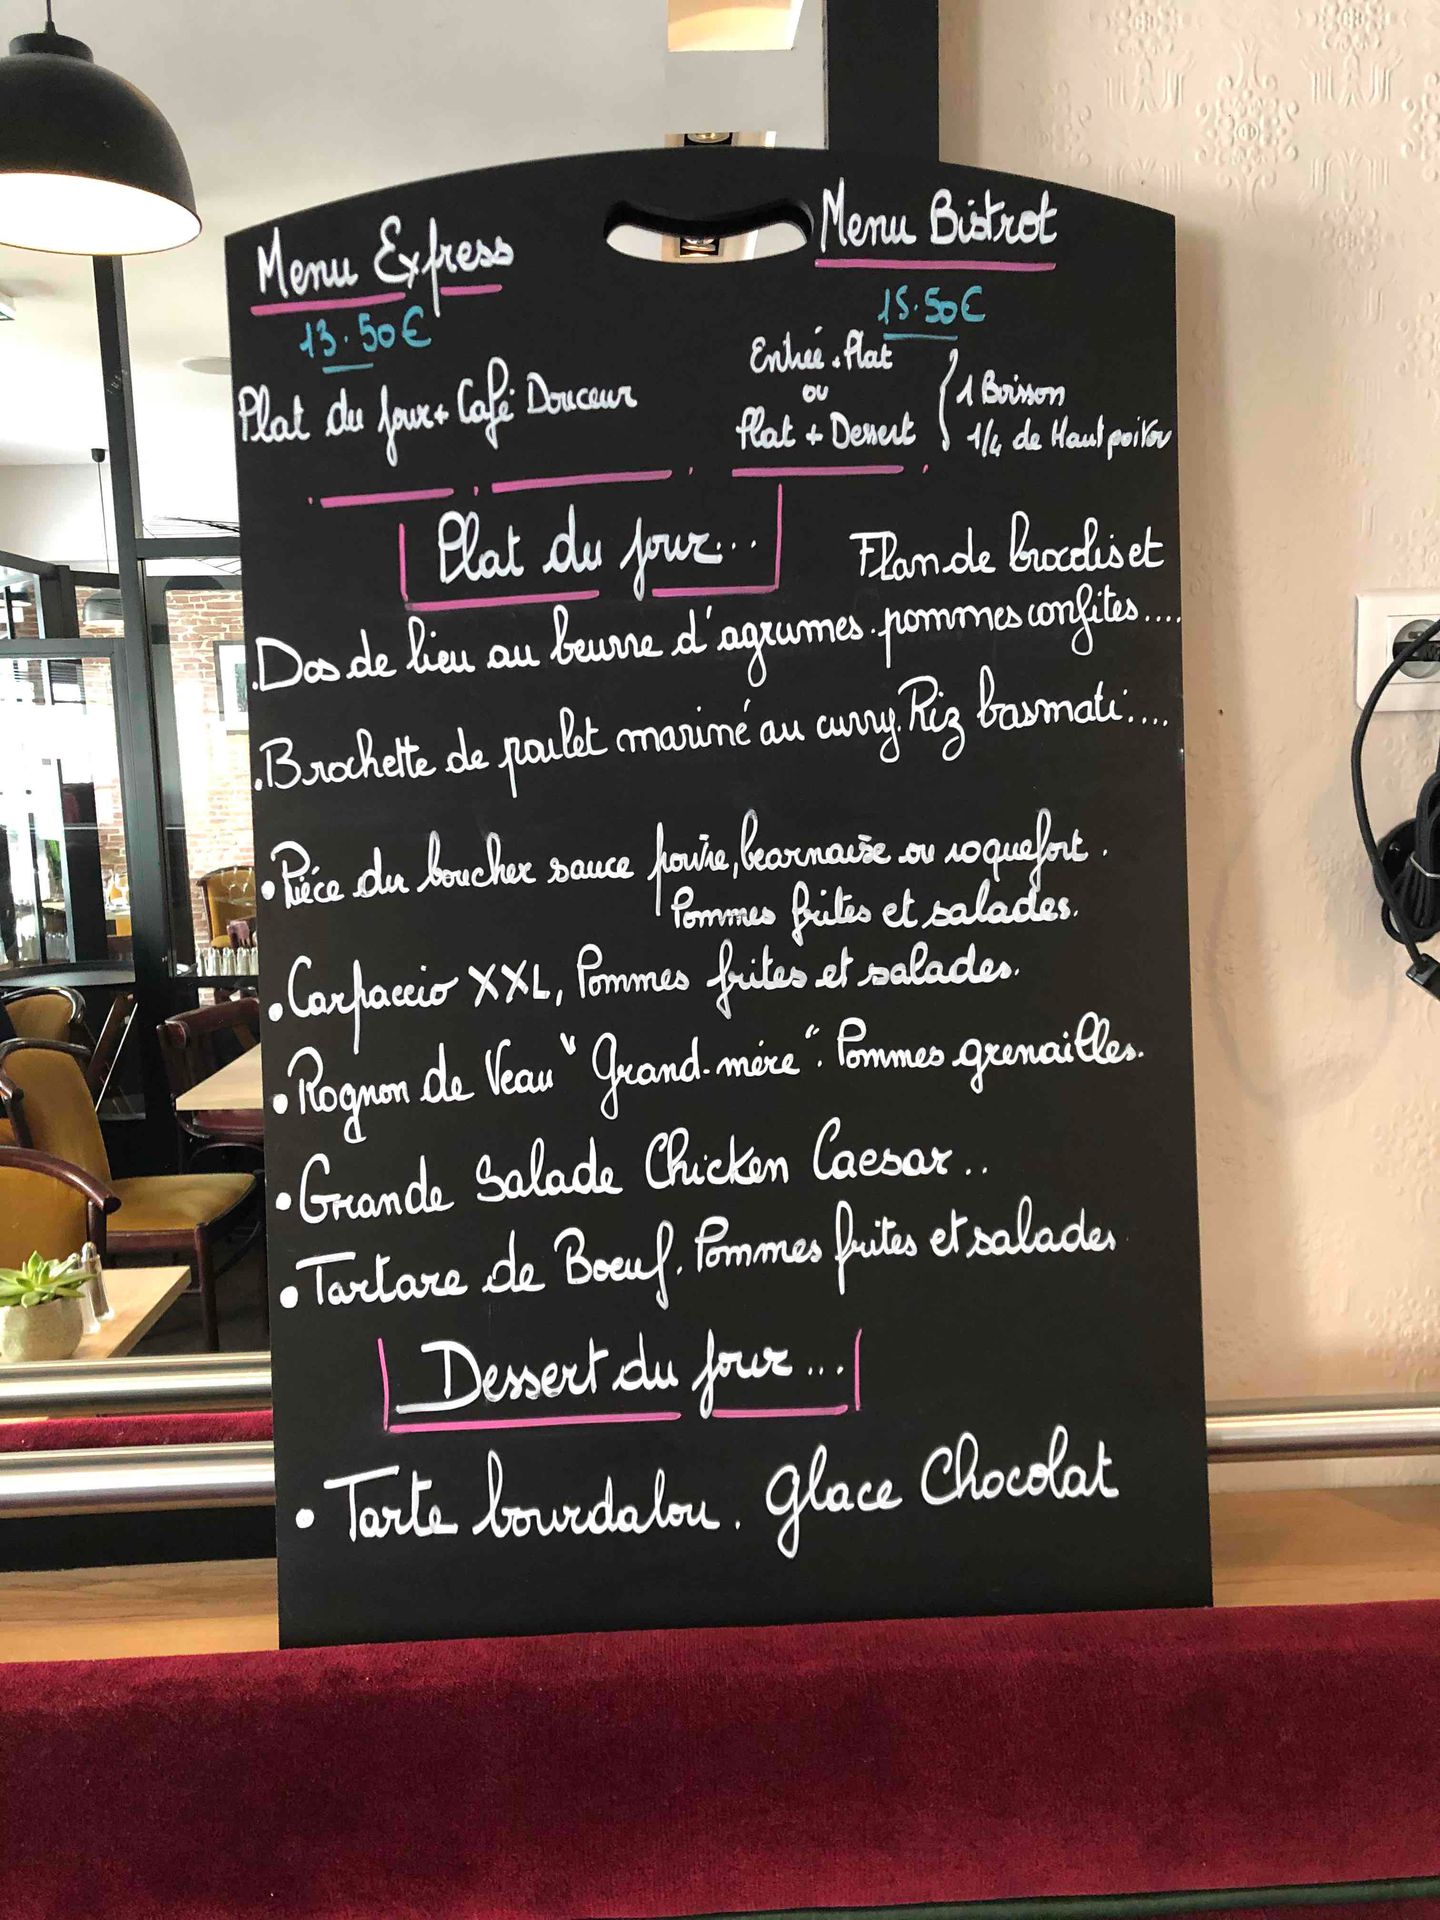 Menu Express
13.50€
Plat du jour + Café Douceur
Menu Bistrot
15.50€
Entrée + Plat
ou
Plat + Dessert
1 Boisson
1/4 de Haut poitou
Plat du jour...
Flan de brocolis et
.Dos de lieu au beurre d'agrumes. pommes confites....
.Brochette de poulet mariné au curry. Riz basmati....
• Piéce du boucher sauce poivre, bearnaise ou roquefort.
Pommes frites et salades.
• Carpaccio XXL, Pommes frites et salades.
• Rognon de Veau "Grand-mére". Pommes grenailles.
• Grande Salade Chicken Caesar..
• Tartare de Boeuf. Pommes frites et salades
Dessert du jour...
• Tarte bourdalou. Glace Chocolat